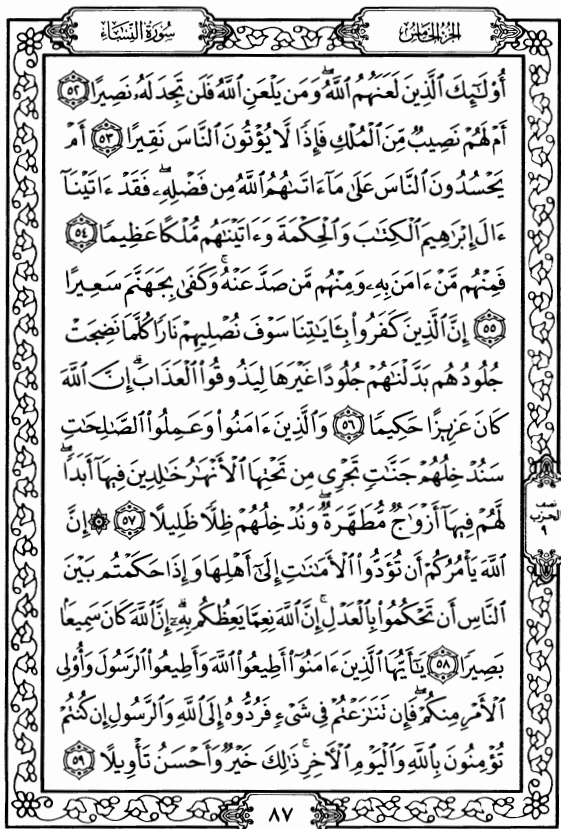 سُورَةُ النِّسَاءِ
الجُزْءُ الخَامِسُ
أُوْلَٰٓئِكَ ٱلَّذِينَ لَعَنَهُمُ ٱللَّهُۖ وَمَن يَلْعَنِ ٱللَّهُ فَلَن تَجِدَ لَهُۥ نَصِيرًا ٥٢
أَمْ لَهُمْ نَصِيبٌ مِّنَ ٱلْمُلْكِ فَإِذًا لَّا يُؤْتُونَ ٱلنَّاسَ نَقِيرًا ٥٣ أَمْ
يَحْسُدُونَ ٱلنَّاسَ عَلَىٰ مَآ ءَاتَىٰهُمُ ٱللَّهُ مِن فَضْلِهِۦۖ فَقَدْ ءَاتَيْنَآ
ءَالَ إِبْرَٰهِيمَ ٱلْكِتَٰبَ وَٱلْحِكْمَةَ وَءَاتَيْنَٰهُم مُّلْكًا عَظِيمًا ٥٤
فَمِنْهُم مَّنْ ءَامَنَ بِهِۦ وَمِنْهُم مَّن صَدَّ عَنْهُۚ وَكَفَىٰ بِجَهَنَّمَ سَعِيرًا
٥٥ إِنَّ ٱلَّذِينَ كَفَرُوا۟ بِـَٔايَٰتِنَا سَوْفَ نُصْلِيهِمْ نَارًا كُلَّمَا نَضِجَتْ
جُلُودُهُم بَدَّلْنَٰهُمْ جُلُودًا غَيْرَهَا لِيَذُوقُوا۟ ٱلْعَذَابَۗ إِنَّ ٱللَّهَ
كَانَ عَزِيزًا حَكِيمًا ٥٦ وَٱلَّذِينَ ءَامَنُوا۟ وَعَمِلُوا۟ ٱلصَّٰلِحَٰتِ
سَنُدْخِلُهُمْ جَنَّٰتٍ تَجْرِى مِن تَحْتِهَا ٱلْأَنْهَٰرُ خَٰلِدِينَ فِيهَآ أَبَدًاۖ
لَّهُمْ فِيهَآ أَزْوَٰجٌ مُّطَهَّرَةٌۖ وَنُدْخِلُهُمْ ظِلًّا ظَلِيلًا ٥٧ ۞ إِنَّ
ٱللَّهَ يَأْمُرُكُمْ أَن تُؤَدُّوا۟ ٱلْأَمَٰنَٰتِ إِلَىٰٓ أَهْلِهَا وَإِذَا حَكَمْتُم بَيْنَ
ٱلنَّاسِ أَن تَحْكُمُوا۟ بِٱلْعَدْلِۚ إِنَّ ٱللَّهَ نِعِمَّا يَعِظُكُم بِهِۦٓۗ إِنَّ ٱللَّهَ كَانَ سَمِيعًۢا
بَصِيرًا ٥٨ يَٰٓأَيُّهَا ٱلَّذِينَ ءَامَنُوٓا۟ أَطِيعُوا۟ ٱللَّهَ وَأَطِيعُوا۟ ٱلرَّسُولَ وَأُو۟لِى
ٱلْأَمْرِ مِنكُمْۖ فَإِن تَنَٰزَعْتُمْ فِى شَىْءٍ فَرُدُّوهُ إِلَى ٱللَّهِ وَٱلرَّسُولِ إِن كُنتُمْ
تُؤْمِنُونَ بِٱللَّهِ وَٱلْيَوْمِ ٱلْأَخِرِۚ ذَٰلِكَ خَيْرٌ وَأَحْسَنُ تَأْوِيلًا ٥٩
نصف
الحزب
٩
٨٧